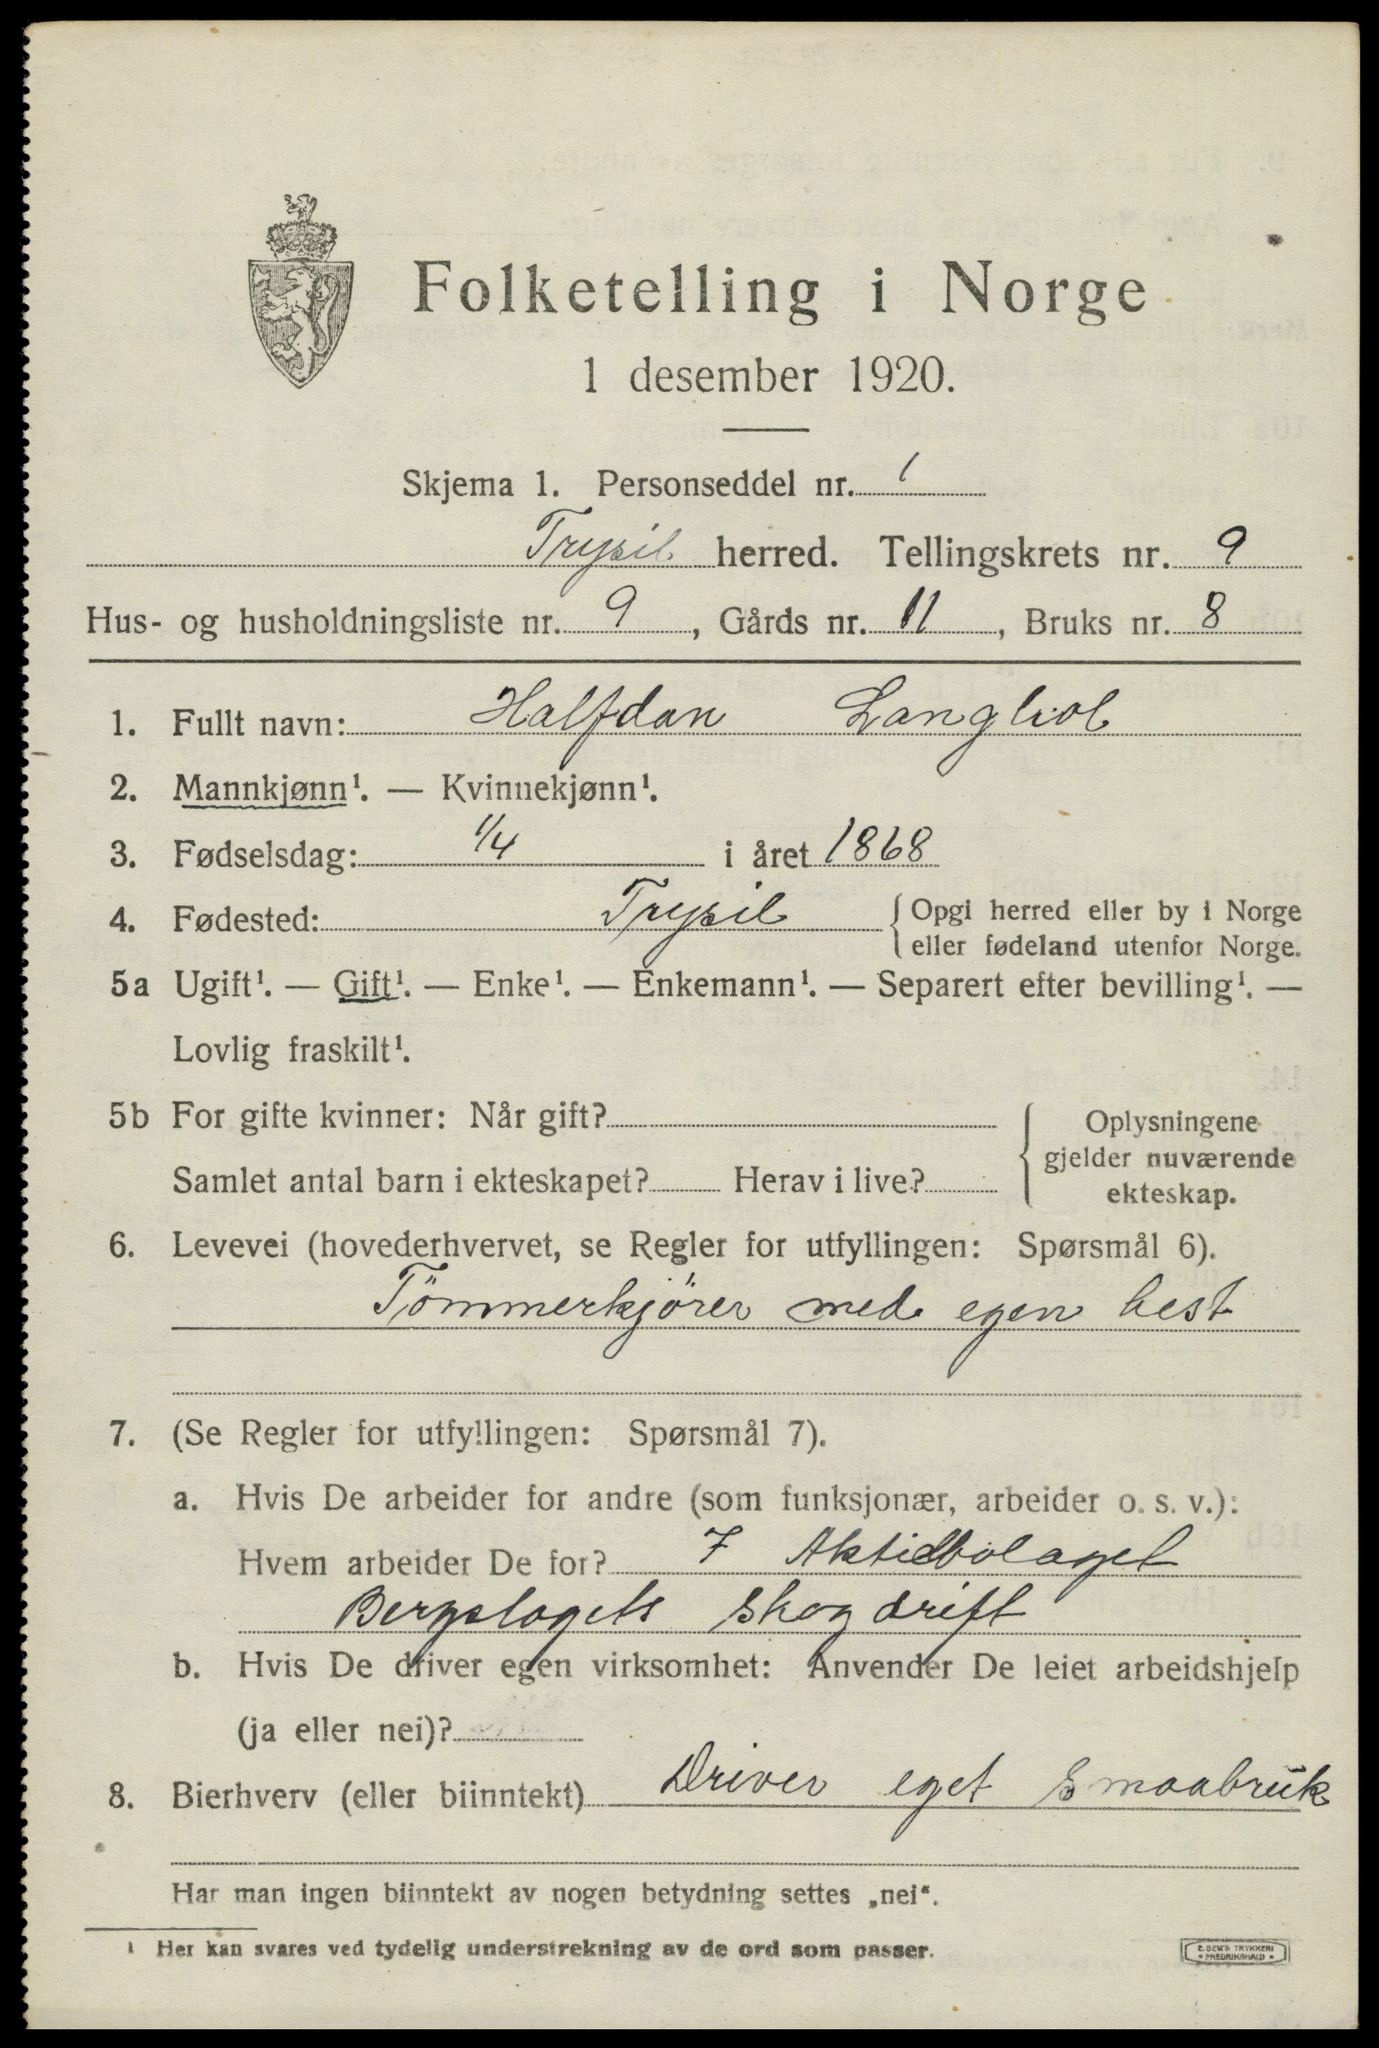 Folketelling i Norge
1 desember 1920.
Skjema 1. Personseddel nr. 1
Trysil herred. Tellingskrets nr. 9
Hus- og husholdningsliste nr. 9, Gårds nr. 11, Bruks nr. 8
1. Fullt navn: Halfdan Langliot
2. Mannkjønn¹. — Kvinnekjønn¹.
3. Fødselsdag: 1/4 i året 1868
4. Fødested: Trysil { Opgi herred eller by i Norge
eller fødeland utenfor Norge.
5a Ugift¹. — Gift¹. — Enke¹. — Enkemann¹. — Separert efter bevilling¹. —
Lovlig fraskilt¹.
5b For gifte kvinner: Når gift?
Samlet antal barn i ekteskapet? Herav i live?
{ Oplysningene
gjelder nuværende
ekteskap.
6. Levevei (hovederhvervet, se Regler for utfyllingen: Spørsmål 6).
Tömmerkjörer med egen hest
7. (Se Regler for utfyllingen: Spørsmål 7).
a. Hvis De arbeider for andre (som funksjonær, arbeider o. s. v.):
Hvem arbeider De for? 7 Aktiebolaget
Bergslagets skogdrift
b. Hvis De driver egen virksomhet: Anvender De leiet arbeidshjelp
(ja eller nei)?
8. Bierhverv (eller biinntekt) Driver eget Smaabruk
Har man ingen biinntekt av nogen betydning settes „nei“.
¹ Her kan svares ved tydelig understrekning av de ord som passer.
E. SEM'S TRYKKERI
• FREDRIKSHALD •